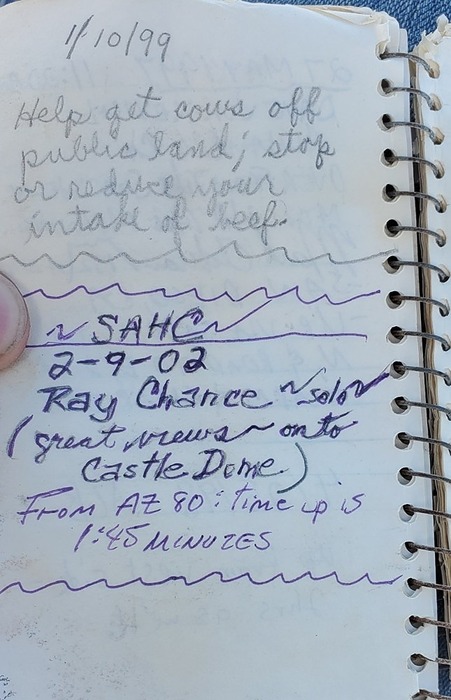 1/10/99
Help get cows off
public land; stop
or reduce your
intake of beef.
~ SAHC ~
2-9-02
Ray Chance ~ solo ~
(great views ~ onto
Castle Dome)
From AZ 80: time up is
1:45 MINUTES